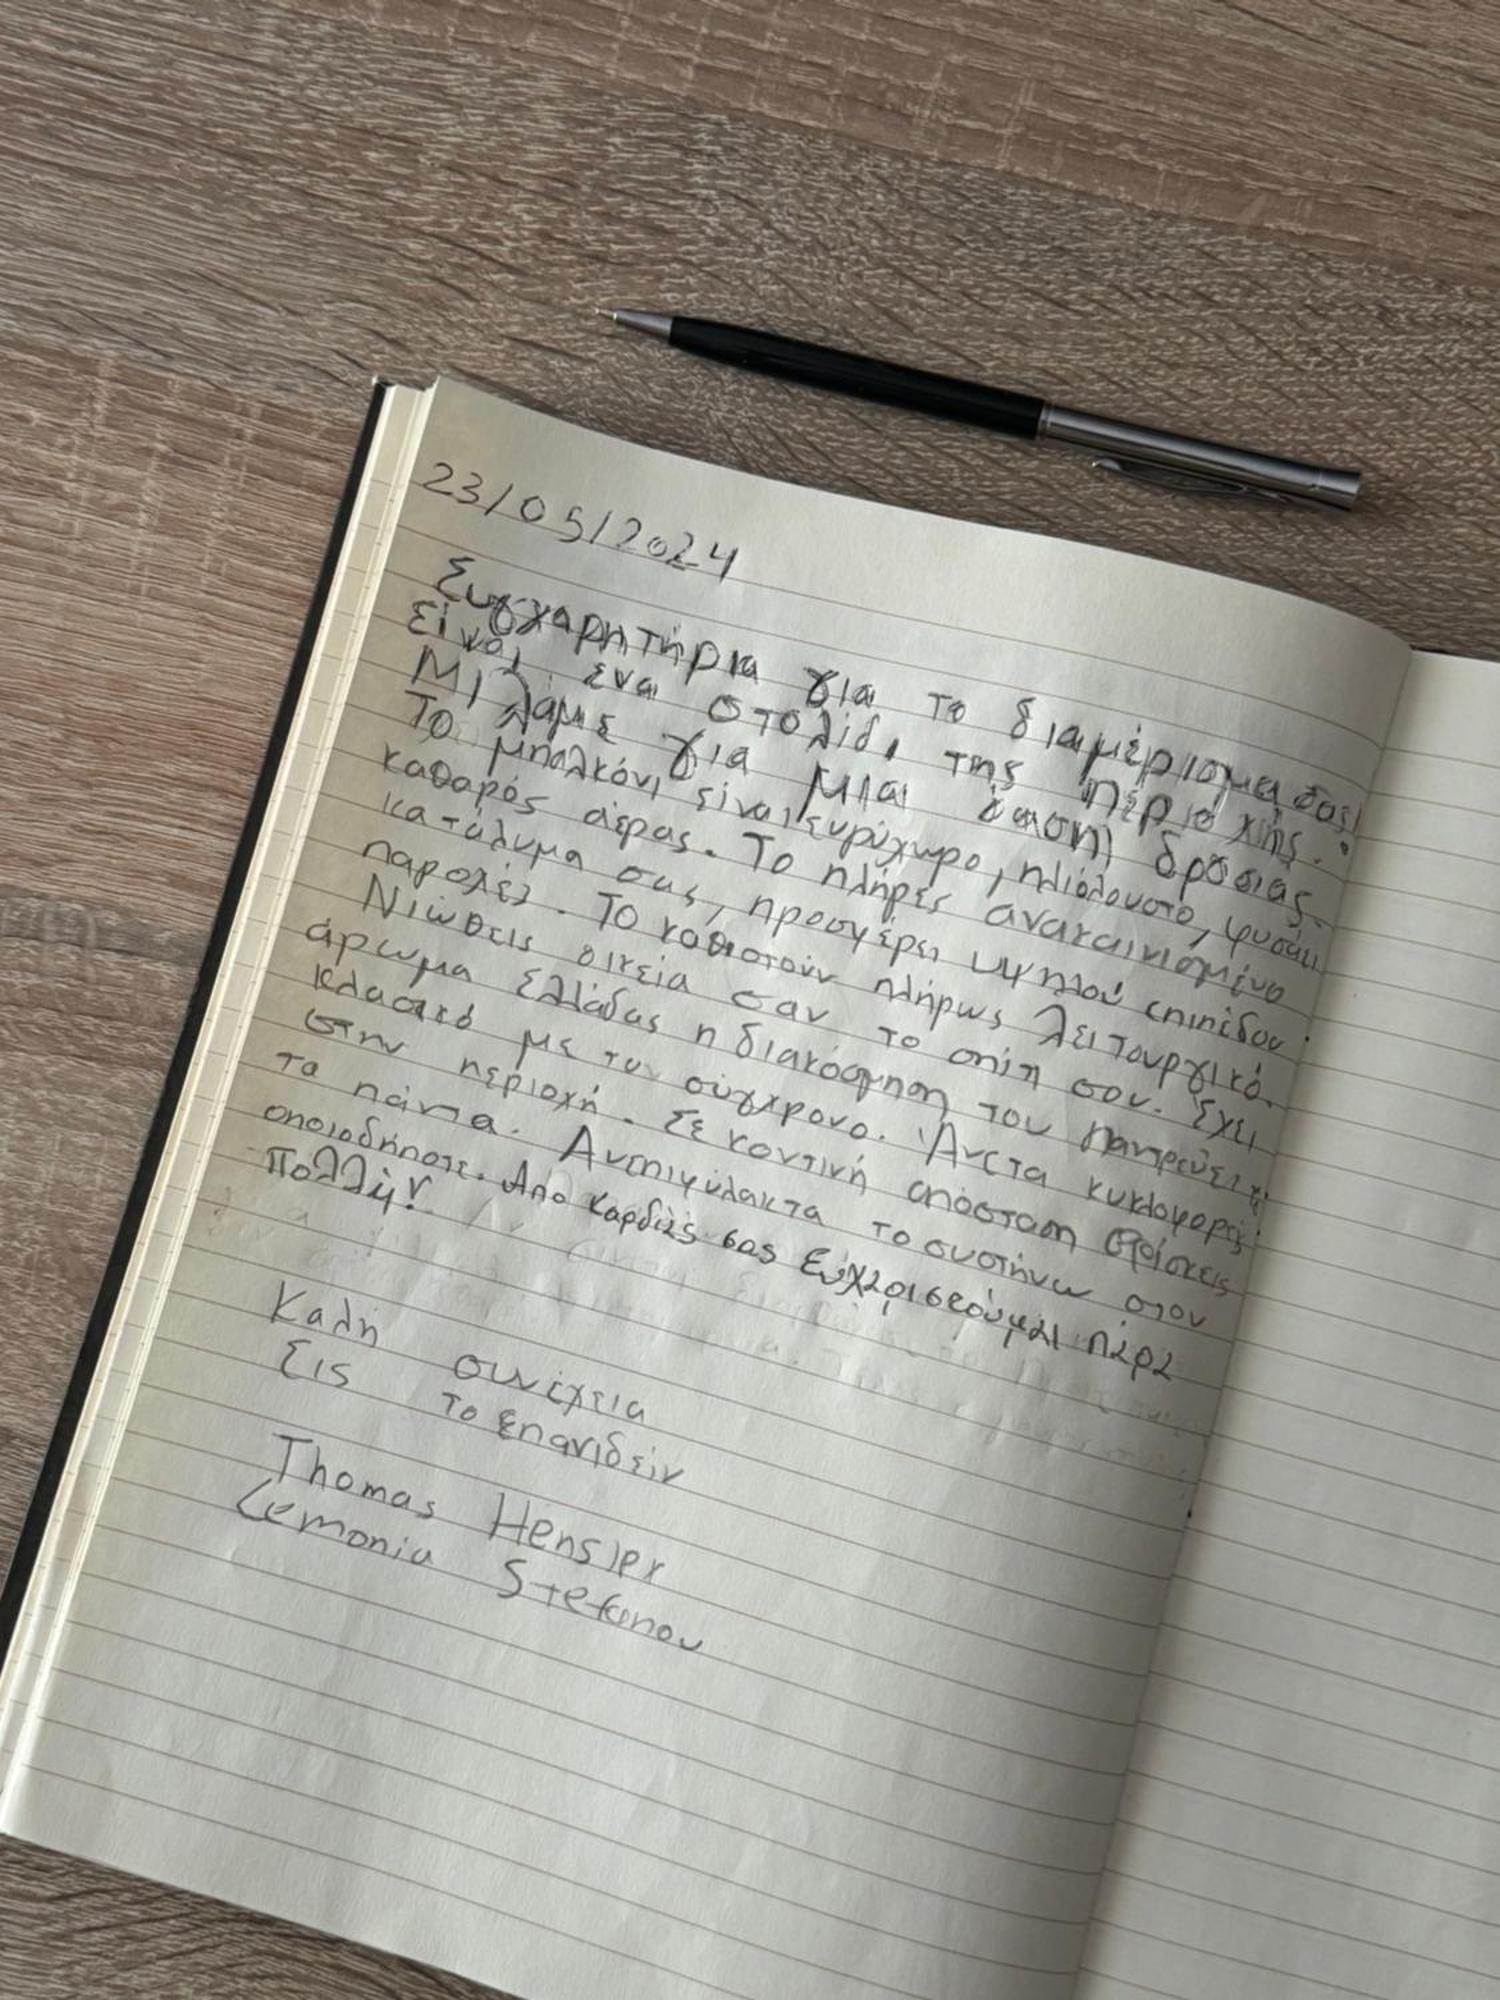 23/05/2024
Συγχαρητήρια για το διαμέρισμα σας!
Είναι ένα στολίδι της περιοχής.
Μιλάμε για μια όαση δροσιάς.
Το μπαλκόνι είναι ευρύχωρο, ηλιόλουστο, φυσάει
καθαρός αέρας. Το πλήρες ανακαινισμένο
κατάλυμα σας, προσφέρει υψηλού επιπέδου
παροχές. Το καθιστούν πλήρως λειτουργικό.
Νιώθεις οικεία σαν το σπίτι σου. Έχει
άρωμα Ελλάδας η διακόσμηση του παντρεύει το
κλασικό με τον σύγχρονο. Άνετα κυκλοφορείς
στην περιοχή. Σε κοντινή απόσταση βρίσκεις
τα πάντα. Ανεπιφύλακτα το συστήνω στον
οποιοδήποτε. Από καρδιάς σας ευχαριστούμαι πάρα
πολλή!
Καλή συνέχεια
Εις το επανιδείν
Thomas Hensler
Lemonia Stefanou